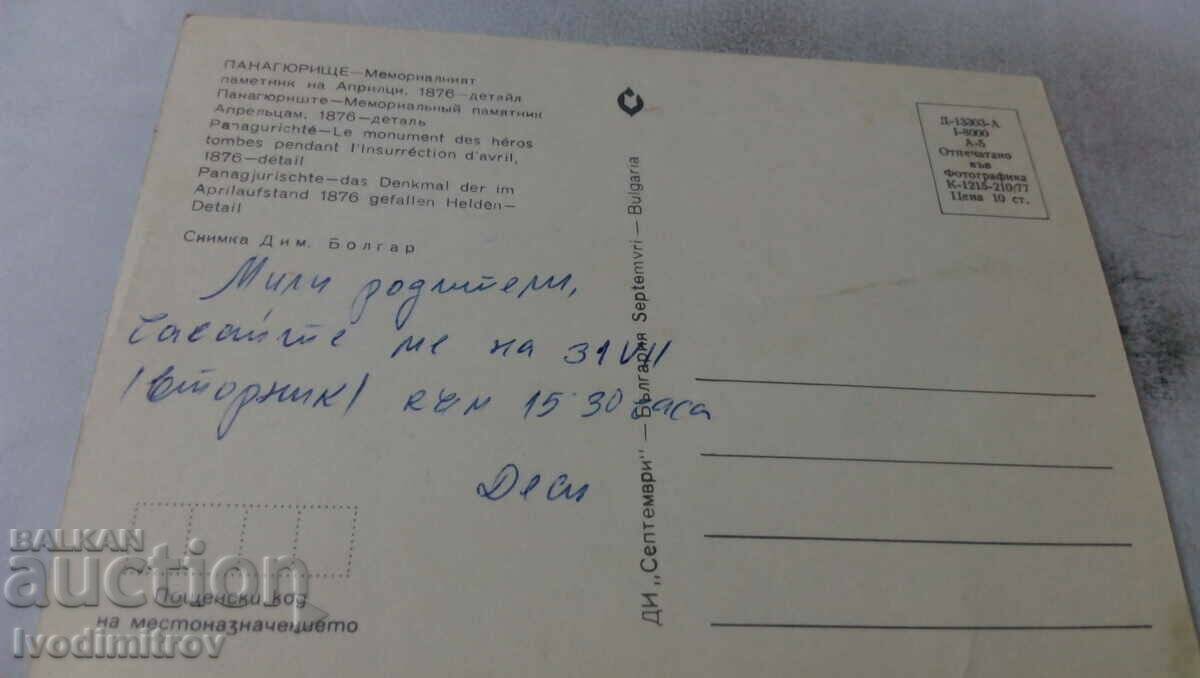 ПАНАГЮРИЩЕ—Мемориалният
паметник на Априлци, 1876—детайл
Панагюриште—Мемориальный памятник
Апрельцам, 1876—деталь
Panagurichté—Le monument des héros
tombes pendant l'Insurréction d'avril,
1876—détail
Panagjurischte—das Denkmal der im
Aprilaufstand 1876 gefallen Helden—
Detail
Снимка Дим. Болгар
Мили родители,
чакайте ме на 31 VII
/вторник/ към 15 30 часа
Деси
Пощенски код
на местоназначението
ДИ „Септември" — България Septemvri — Bulgaria
Д-13303-А
I-8000
А-5
Отпечатано
във
Фотографика
К-1215-210/77
Цена 10 ст.
BALKAN
auction
Ivodimitrov